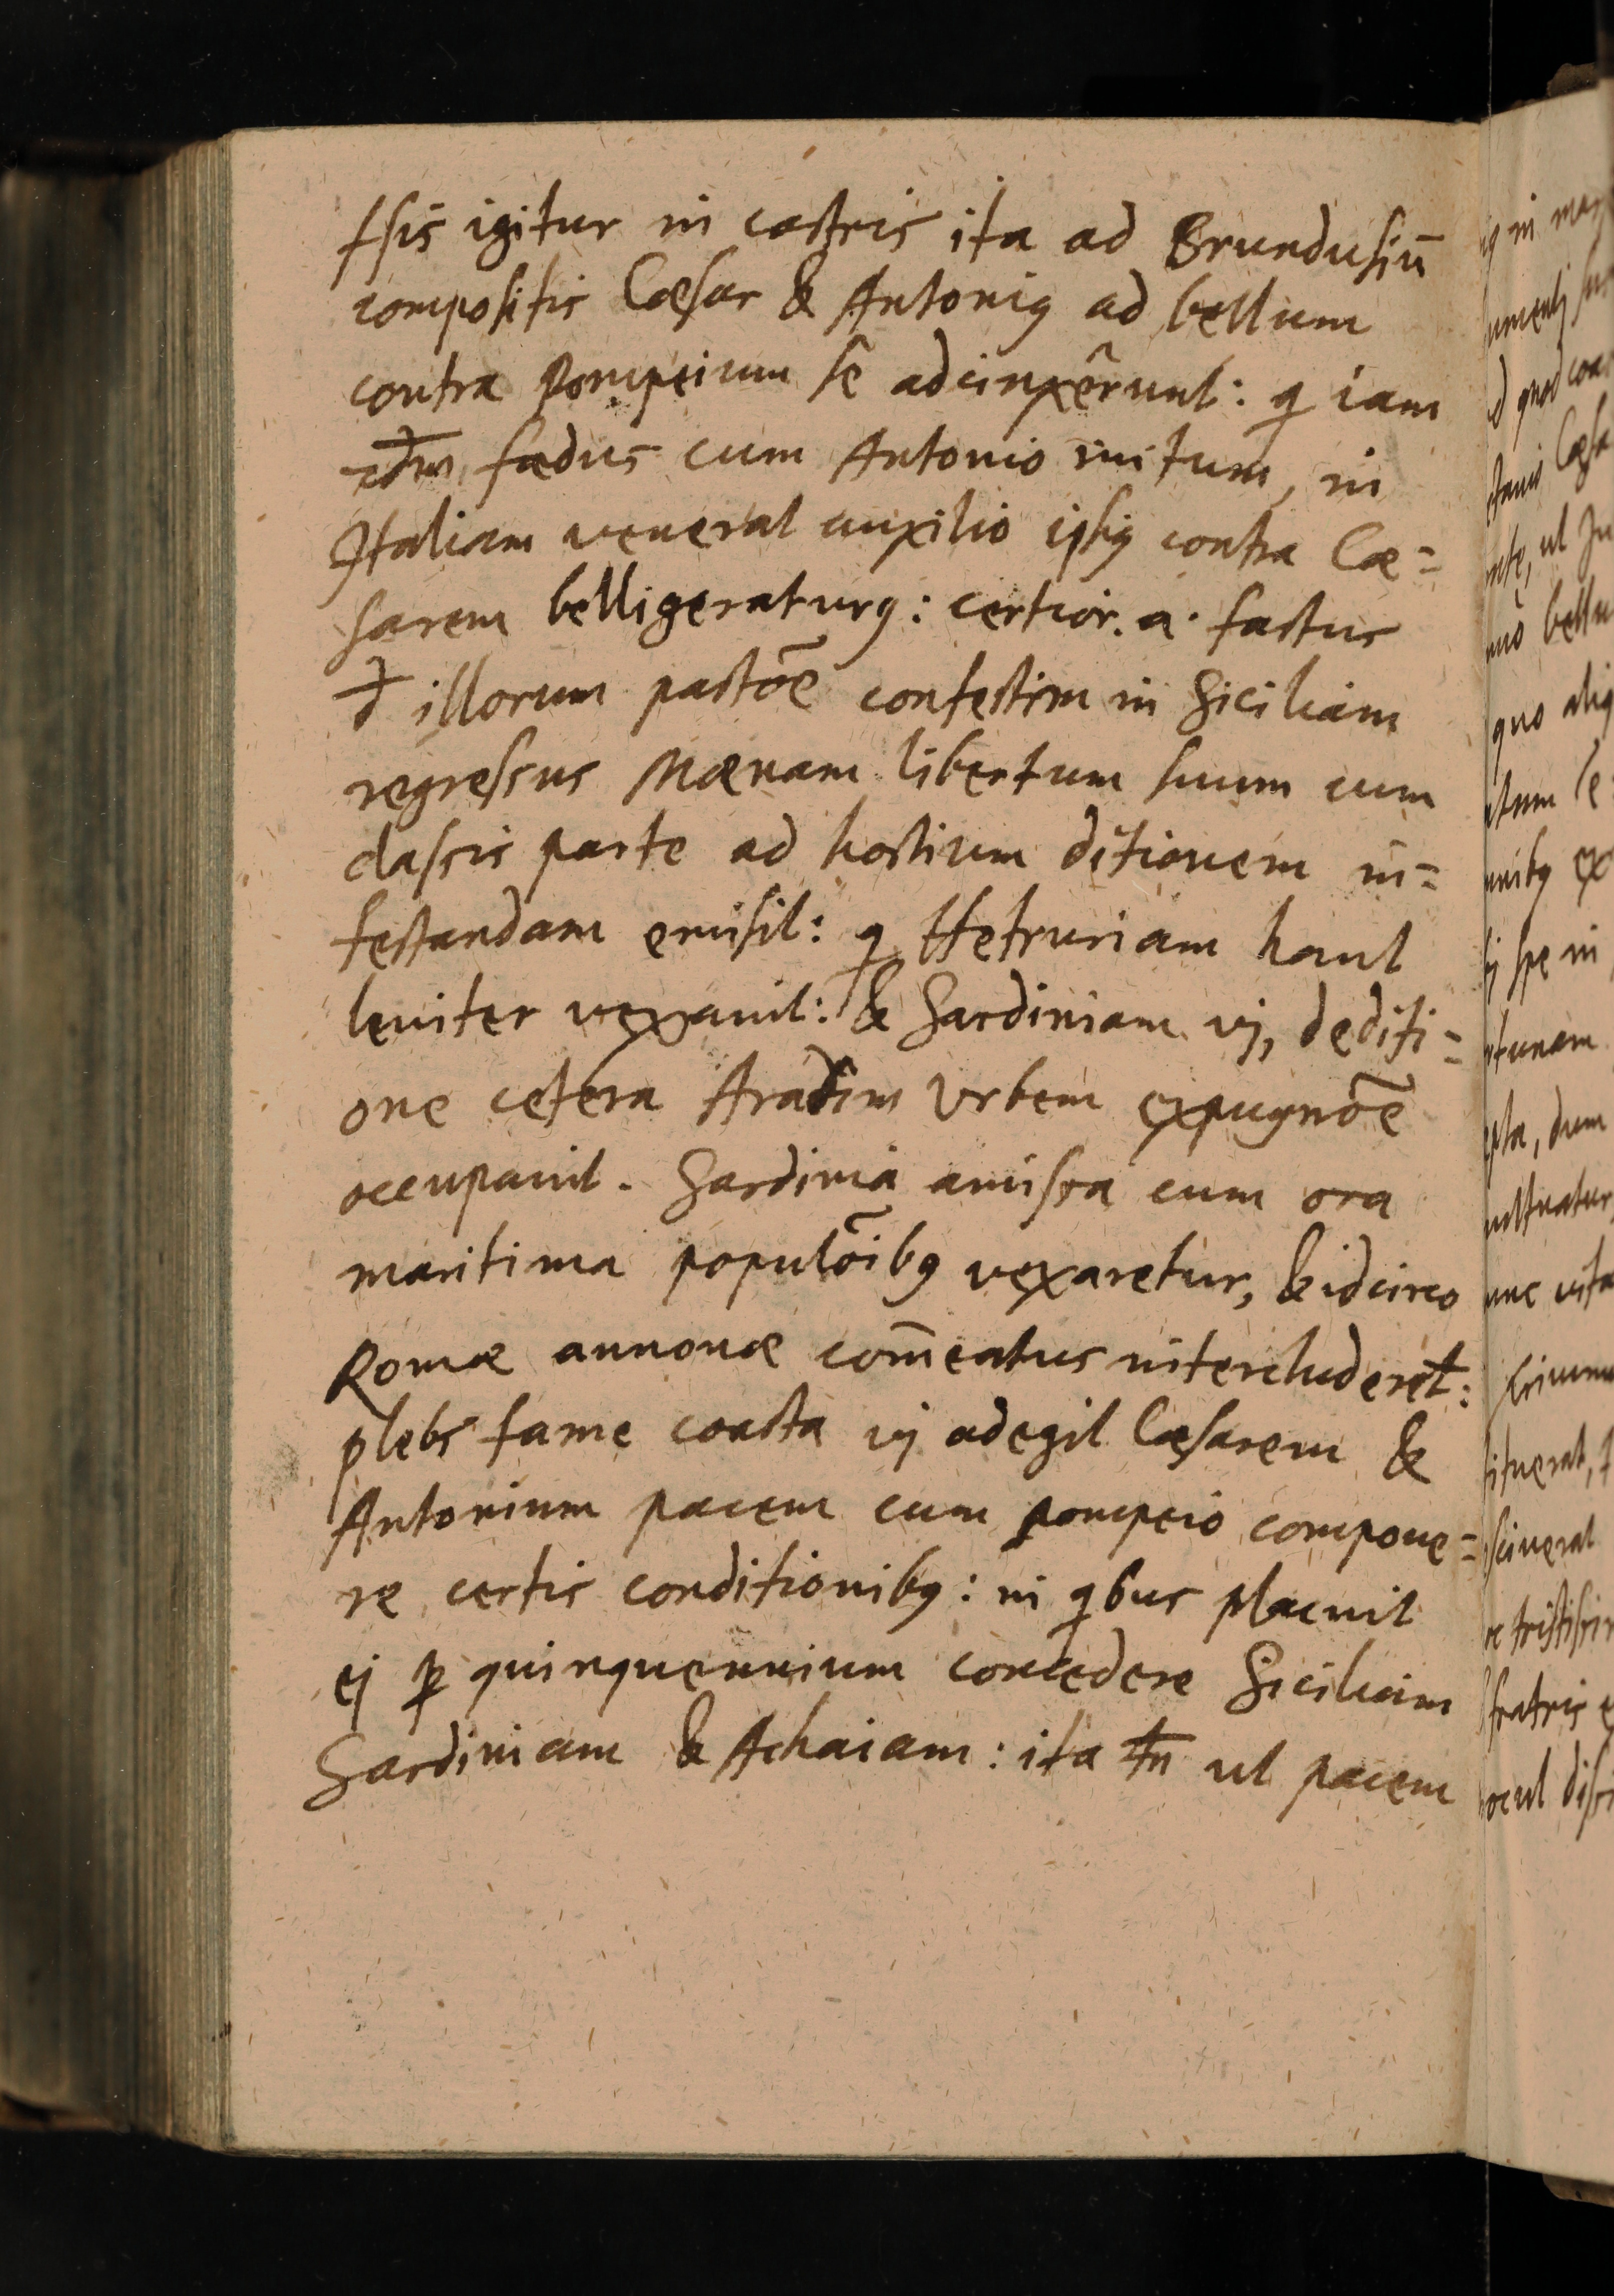 ſsis igitur in castris ita ad Brundusiū
compositis Cæsar & Antoniꝰ ad bellum
contra Pompeium sê adcinxêrunt: q iam
fœdus cum Antonio initum, in
Italiam venerat auxilio ipsiꝰ contra Cæ=
sarem belligeraturꝰ: certior. a. factus
đ illorum pactōe confestim in Siciliam
regressus Mænam libertum suum cum
classis parte ad hostium ditionem in=
festandam emisit: q Hetruriam haut
leviter vexavit: & Sardiniam vj, dediti=
one cetera Aradim Vrbem expugnōe
occupavit. Sardinia amissa cum ora
maritima populōibꝰ vexaretur, & idcirco
Romæ annonæ com̄eatus intercluderet:
plebs fame coacta vj adegit Cæsarem &
Antonium pacem cum Pompeio compone=
re certis conditionibꝰ: in qbus placuit
ej ꝑ quinquennium concedere Siciliam
Sardiniam & Achaiam: ita tn̄ ut pacem
in mar
quod coa
Cæsa
ut Ju
bellu
quo aliq
itum se
spe in
dum
vita
fratris